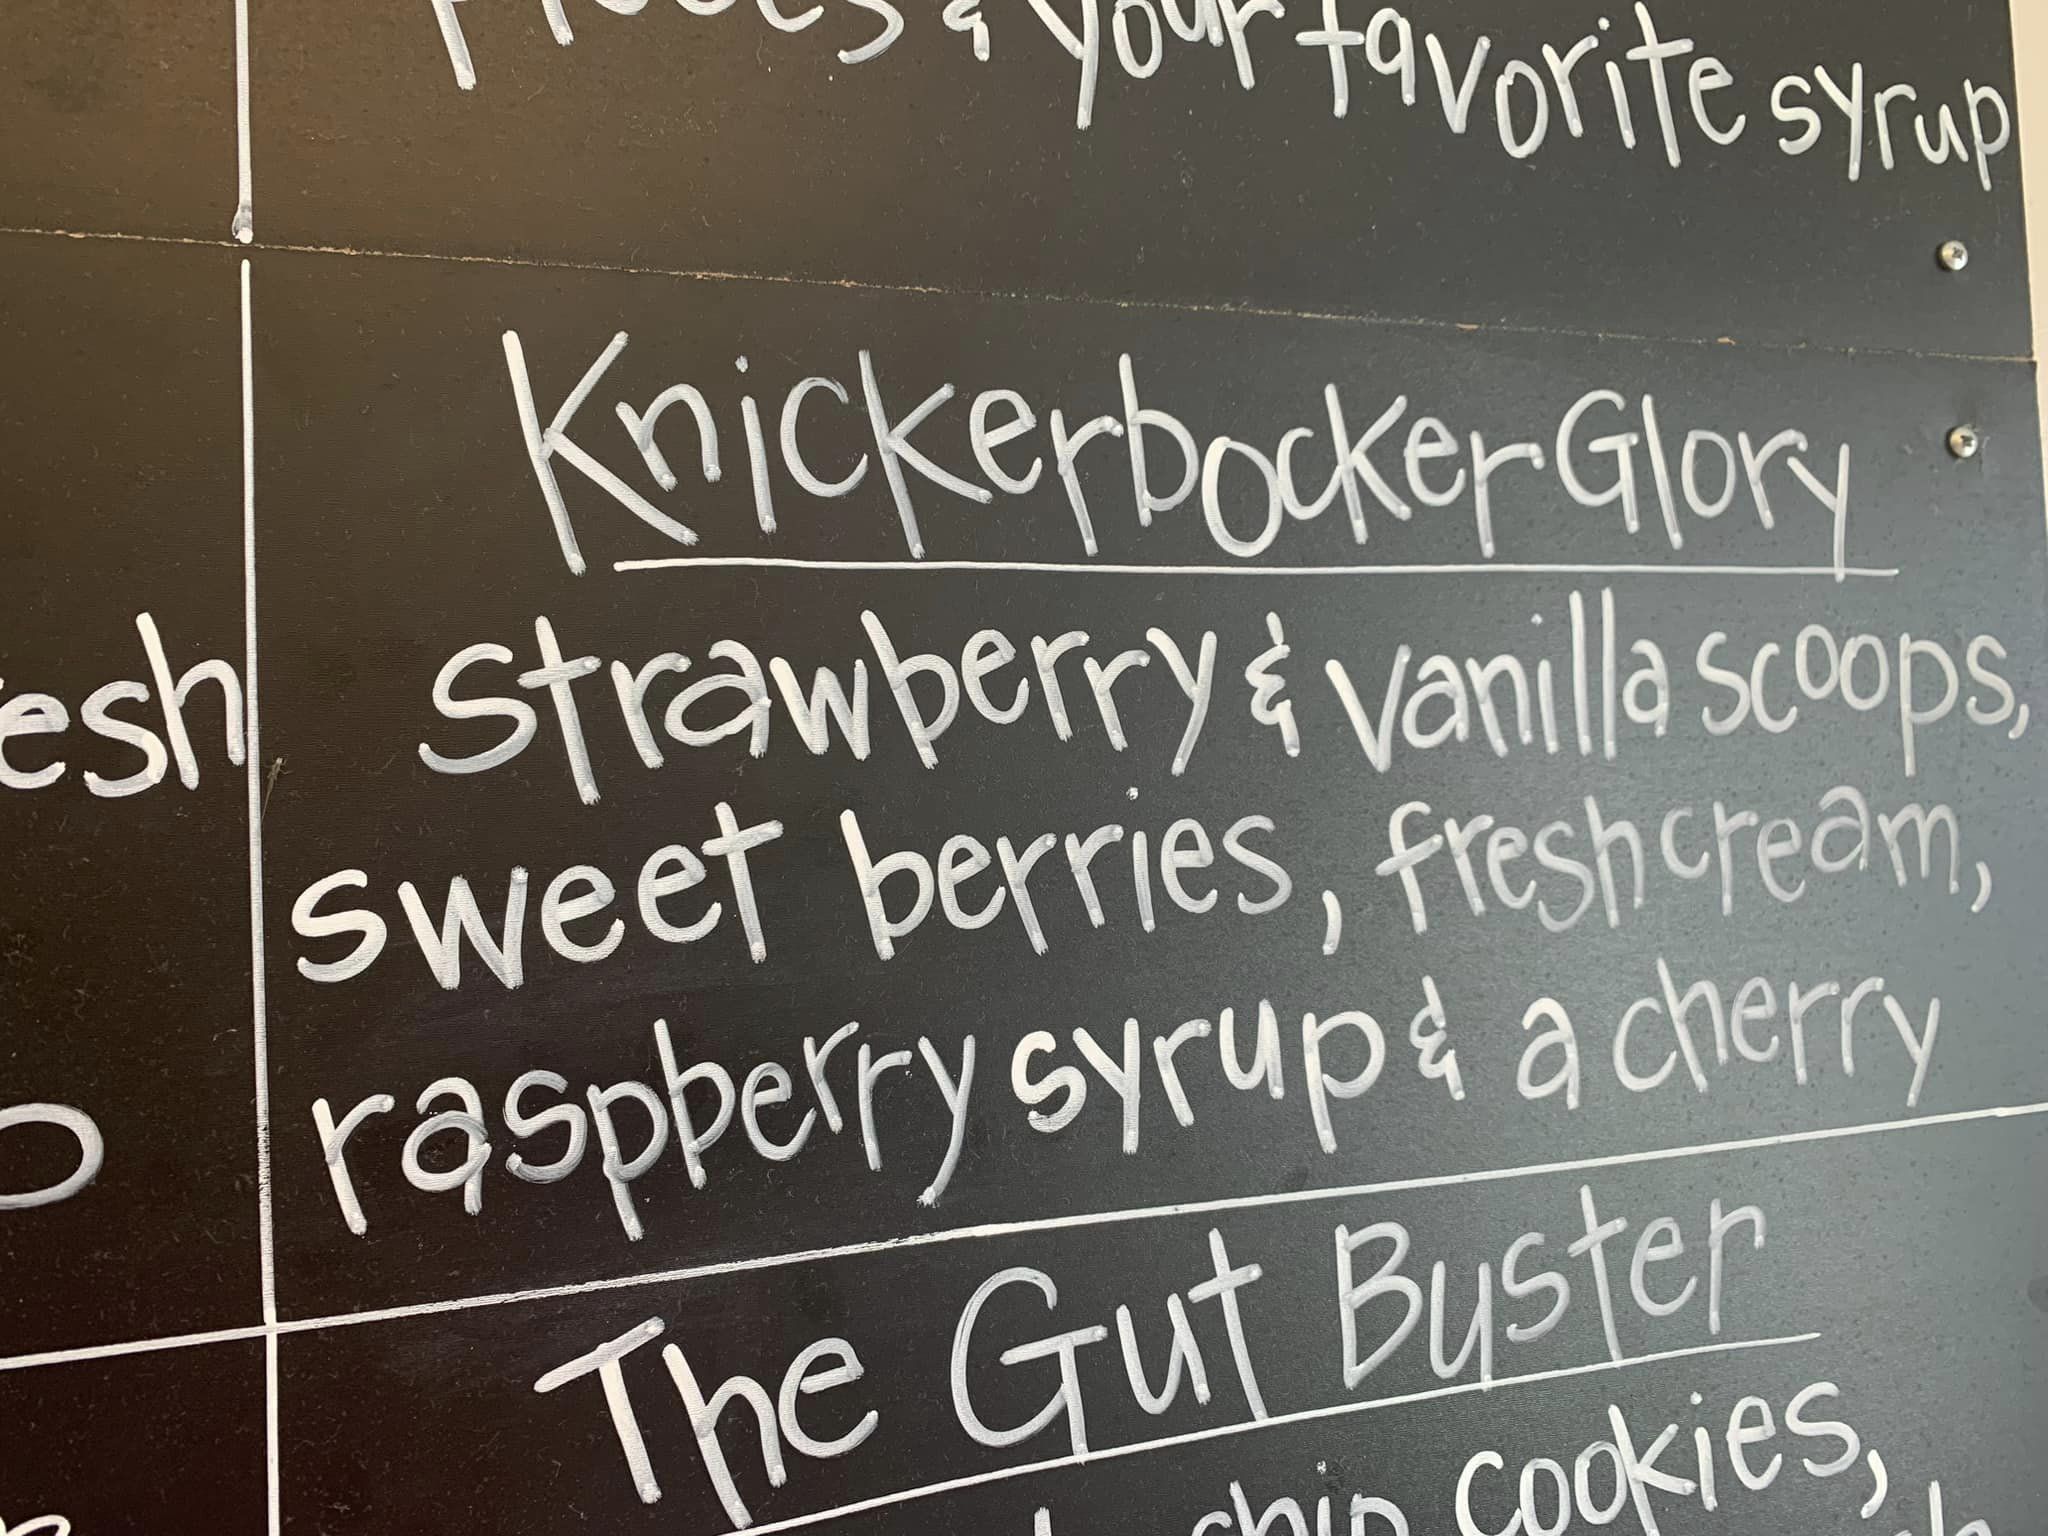 & your favorite syrup
Knickerbocker Glory
strawberry & vanilla scoops,
esh
sweet berries, fresh cream,
raspberry syrup & a cherry
The Gut Buster
chip cookies,